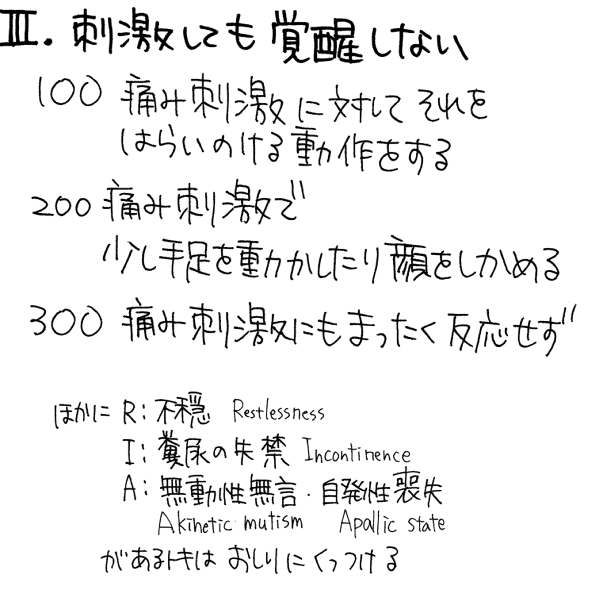 III. 刺激しても覚醒しない
100 痛み刺激に対してそれを
はらいのける動作をする
200 痛み刺激で
少し手足を動かしたり顔をしかめる
300 痛み刺激にもまったく反応せず
ほかに R: 不穏 Restlessness
I: 糞尿の失禁 Incontinence
A: 無動性無言・自発性喪失
Akinetic mutism Apallic state
があるトキは おしりにくっつける